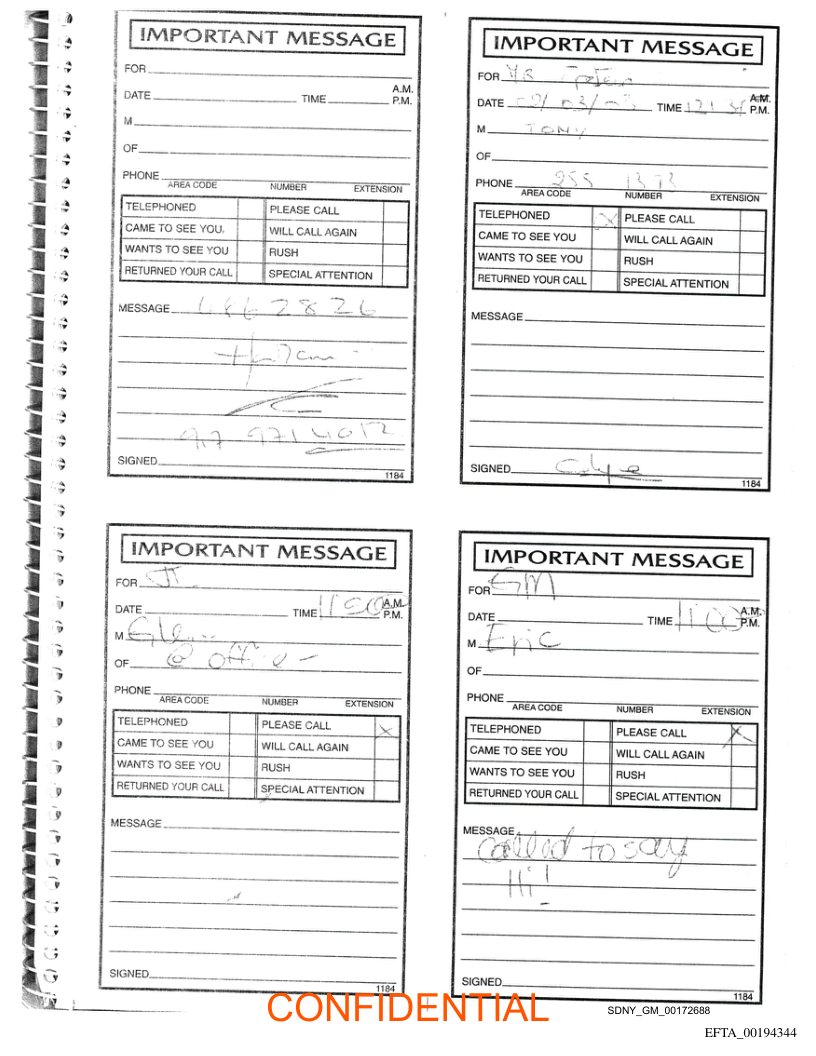 IMPORTANT MESSAGE
FOR
DATE TIME A.M. P.M.
M
OF
PHONE
AREA CODE NUMBER EXTENSION
TELEPHONED PLEASE CALL
CAME TO SEE YOU WILL CALL AGAIN
WANTS TO SEE YOU RUSH
RETURNED YOUR CALL SPECIAL ATTENTION
MESSAGE 4862826
917 971 4012
SIGNED
1184
IMPORTANT MESSAGE
FOR MR Epstein
DATE /03/03 TIME A.M. P.M.
M TONY
OF
PHONE 255 1373
AREA CODE NUMBER EXTENSION
TELEPHONED X PLEASE CALL
CAME TO SEE YOU WILL CALL AGAIN
WANTS TO SEE YOU RUSH
RETURNED YOUR CALL SPECIAL ATTENTION
MESSAGE
SIGNED
1184
IMPORTANT MESSAGE
FOR
DATE TIME A.M. P.M.
M
OF @ office
PHONE
AREA CODE NUMBER EXTENSION
TELEPHONED PLEASE CALL X
CAME TO SEE YOU WILL CALL AGAIN
WANTS TO SEE YOU RUSH
RETURNED YOUR CALL SPECIAL ATTENTION
MESSAGE
SIGNED
1184
IMPORTANT MESSAGE
FOR GM
DATE TIME 11:00 A.M. P.M.
M Eric
OF
PHONE
AREA CODE NUMBER EXTENSION
TELEPHONED PLEASE CALL X
CAME TO SEE YOU WILL CALL AGAIN
WANTS TO SEE YOU RUSH
RETURNED YOUR CALL SPECIAL ATTENTION
MESSAGE
Called to say
Hi!
SIGNED
1184
CONFIDENTIAL
SDNY_GM_00172688
EFTA_00194344